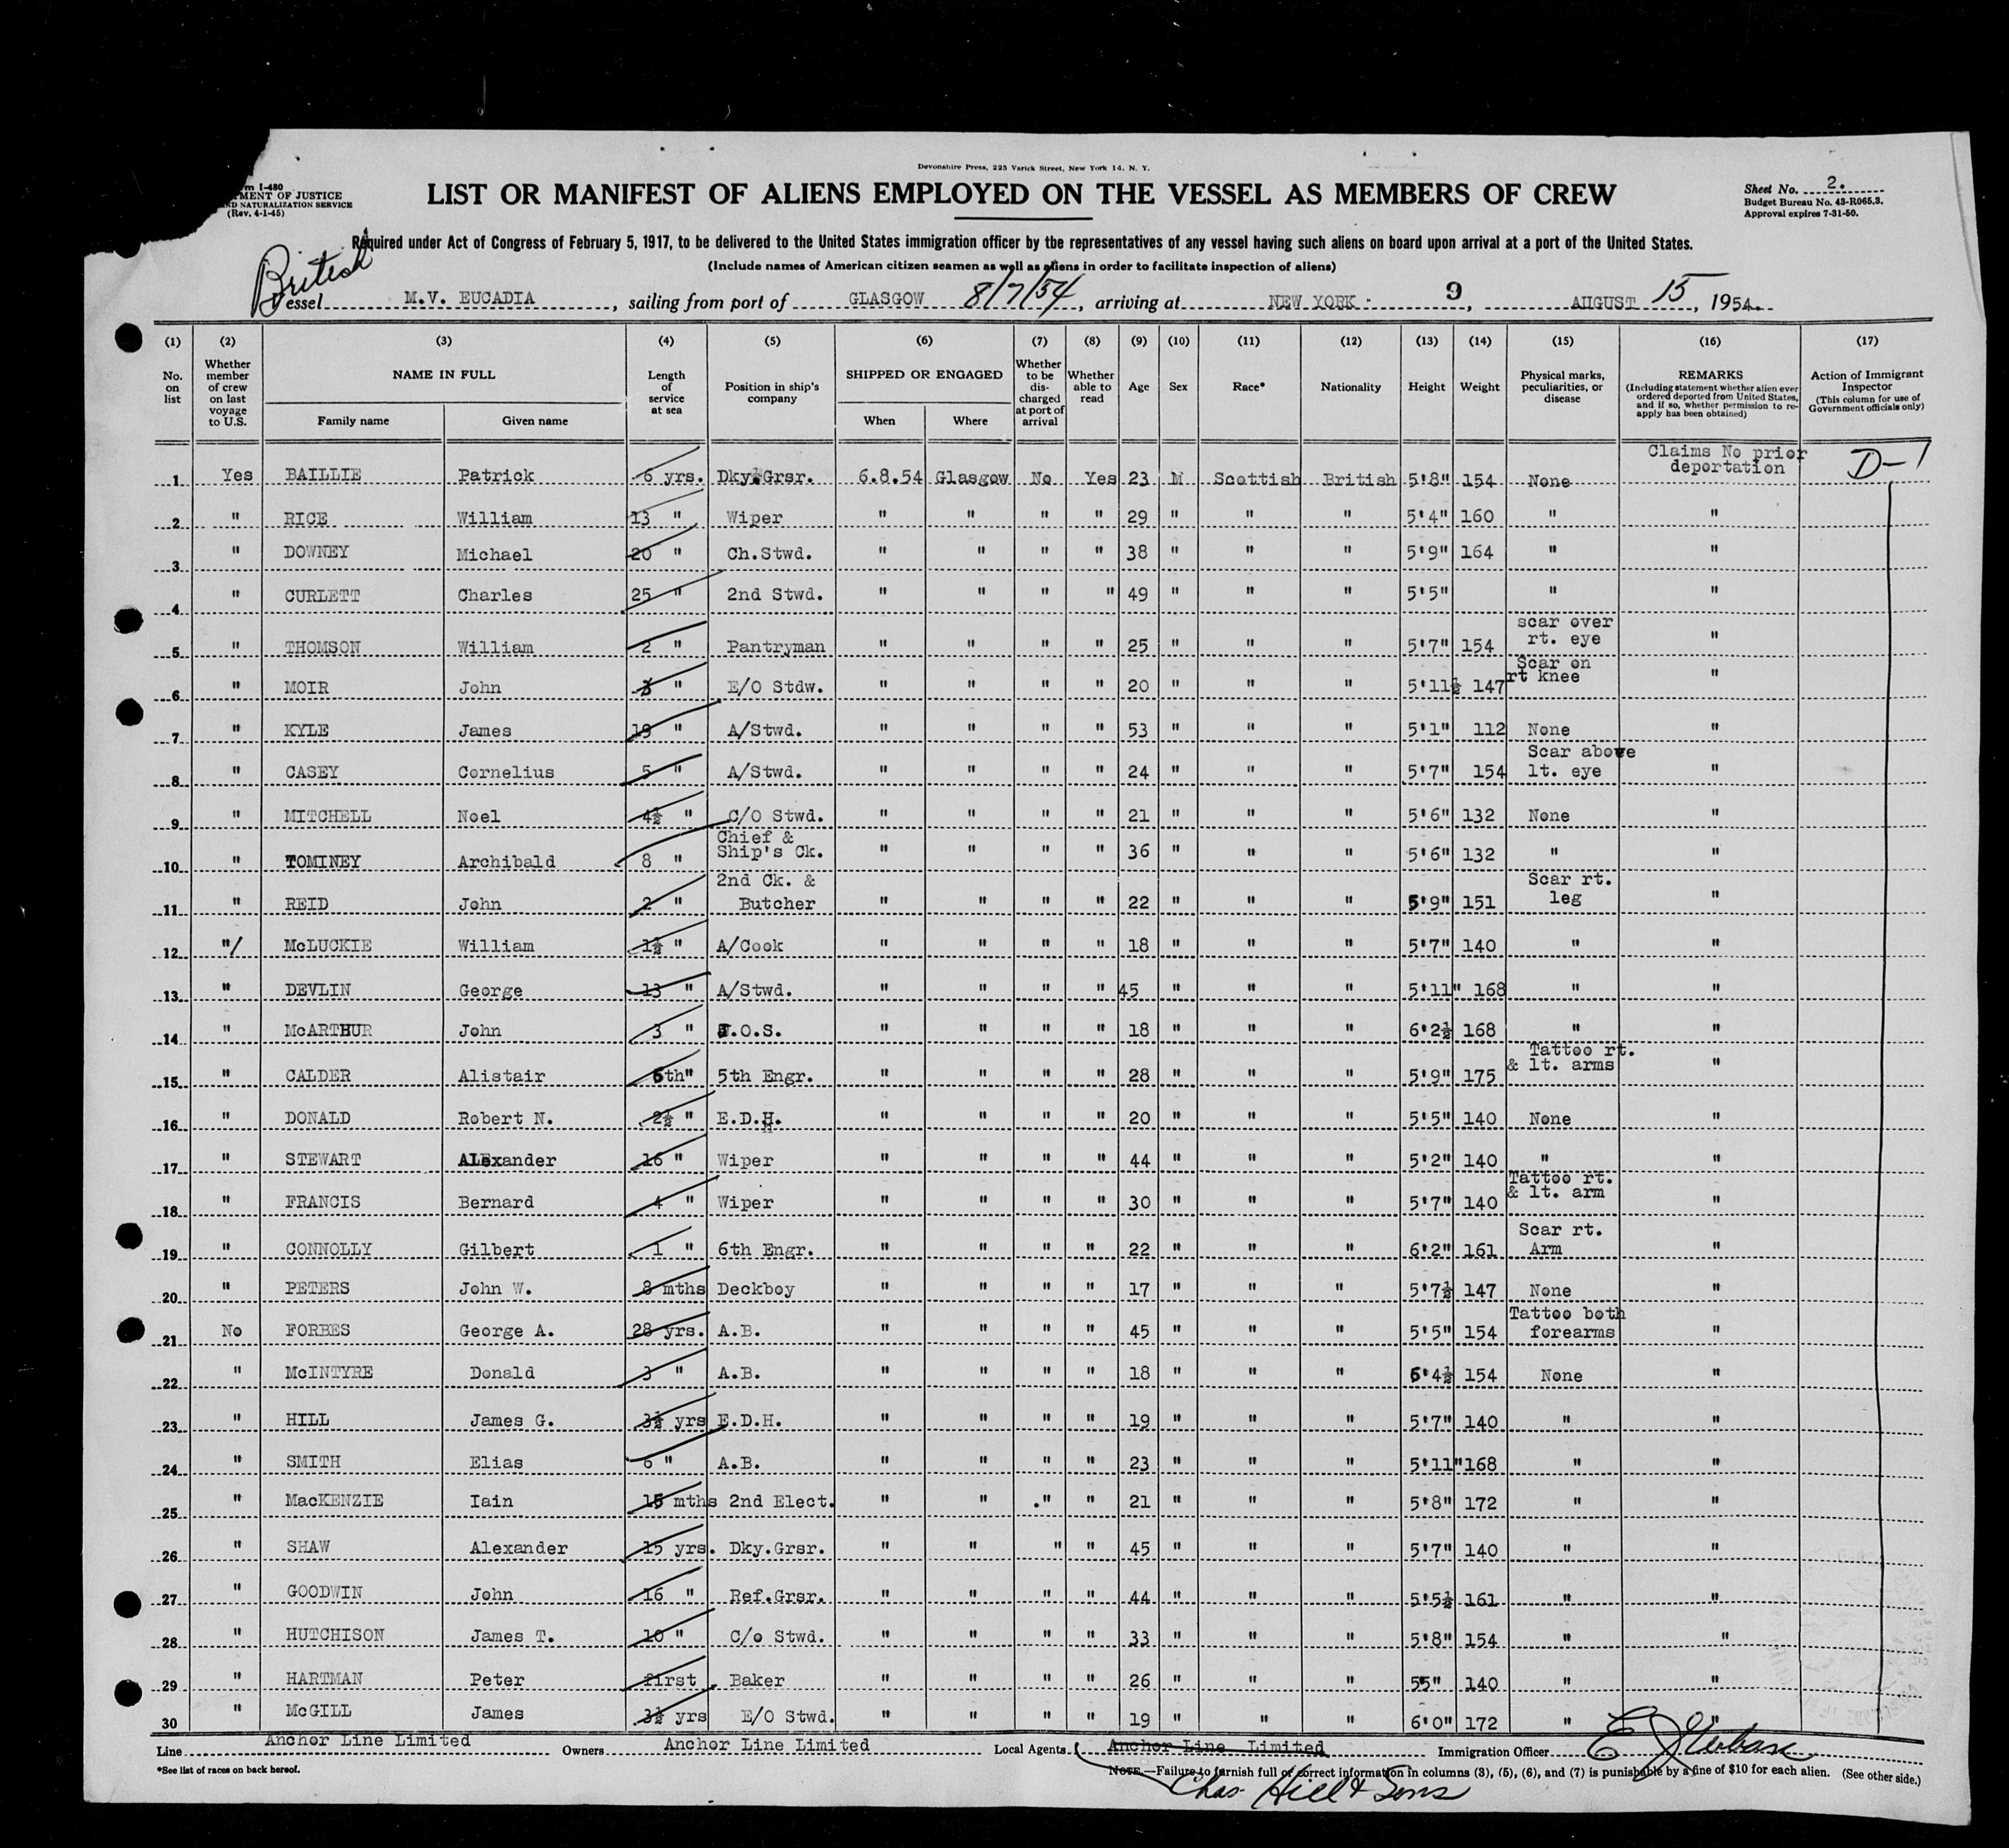 Devonshire Press, 225 Varick Street, New York 14, N. Y.
m I-480
MENT OF JUSTICE
ND NATURALIZATION SERVICE
(Rev. 4-1-45)
LIST OR MANIFEST OF ALIENS EMPLOYED ON THE VESSEL AS MEMBERS OF CREW
Sheet No. 2.
Budget Bureau No. 43-R065.3.
Approval expires 7-31-50.
Required under Act of Congress of February 5, 1917, to be delivered to the United States immigration officer by the representatives of any vessel having such aliens on board upon arrival at a port of the United States.
(Include names of American citizen seamen as well as aliens in order to facilitate inspection of aliens)
British
Vessel M.V. EUCADIA, sailing from port of GLASGOW 8/7/54, arriving at NEW YORK 9, AUGUST 15, 1954.
(1) (2) (3) (4) (5) (6) (7) (8) (9) (10) (11) (12) (13) (14) (15) (16) (17)
No. on list
Whether member of crew on last voyage to U.S.
NAME IN FULL
Family name Given name
Length of service at sea
Position in ship's company
SHIPPED OR ENGAGED
When Where
Whether to be discharged at port of arrival
Whether able to read
Age Sex Race* Nationality Height Weight
Physical marks, peculiarities, or disease
REMARKS
(Including statement whether alien ever ordered deported from United States, and if so, whether permission to reapply has been obtained)
Action of Immigrant Inspector
(This column for use of Government officials only)
1 Yes BAILLIE Patrick 6 yrs. Dky.Grsr. 6.8.54 Glasgow No Yes 23 M Scottish British 5'8" 154 None Claims No prior deportation D-1
2 " RICE William 13 " Wiper " " " " 29 " " " 5'4" 160 " "
3 " DOWNEY Michael 20 " Ch.Stwd. " " " " 38 " " " 5'9" 164 " "
4 " CURLETT Charles 25 " 2nd Stwd. " " " " 49 " " " 5'5" " "
5 " THOMSON William 2 " Pantryman " " " " 25 " " " 5'7" 154 scar over rt. eye "
6 " MOIR John 3 " E/O Stdw. " " " " 20 " " " 5'11½ 147 Scar on rt knee "
7 " KYLE James 19 " A/Stwd. " " " " 53 " " " 5'1" 112 None "
8 " CASEY Cornelius 5 " A/Stwd. " " " " 24 " " " 5'7" 154 Scar above lt. eye "
9 " MITCHELL Noel 4½ " C/O Stwd. " " " " 21 " " " 5'6" 132 None "
10 " TOMINEY Archibald 8 " Chief & Ship's Ck. " " " " 36 " " " 5'6" 132 " "
11 " REID John 2 " 2nd Ck. & Butcher " " " " 22 " " " 5'9" 151 Scar rt. leg "
12 "/ McLUCKIE William 1½ " A/Cook " " " " 18 " " " 5'7" 140 " "
13 " DEVLIN George 13 " A/Stwd. " " " " 45 " " " 5'11" 168 " "
14 " McARTHUR John 3 " J.O.S. " " " " 18 " " " 6'2½ 168 " "
15 " CALDER Alistair 6th" 5th Engr. " " " " 28 " " " 5'9" 175 Tattoo rt. & lt. arms "
16 " DONALD Robert N. 2½ " E.D.H. " " " " 20 " " " 5'5" 140 None "
17 " STEWART ALExander 16 " Wiper " " " " 44 " " " 5'2" 140 " "
18 " FRANCIS Bernard 4 " Wiper " " " " 30 " " " 5'7" 140 Tattoo rt. & lt. arm "
19 " CONNOLLY Gilbert 1 " 6th Engr. " " " " 22 " " " 6'2" 161 Scar rt. Arm "
20 " PETERS John W. 8 mths Deckboy " " " " 17 " " " 5'7½ 147 None "
21 No FORBES George A. 28 yrs. A.B. " " " " 45 " " " 5'5" 154 Tattoo both forearms "
22 " McINTYRE Donald 3 " A.B. " " " " 18 " " " 6'4½ 154 None "
23 " HILL James G. 3½ yrs E.D.H. " " " " 19 " " " 5'7" 140 " "
24 " SMITH Elias 6 " A.B. " " " " 23 " " " 5'11" 168 " "
25 " MacKENZIE Iain 15 mths 2nd Elect. " " ." " 21 " " " 5'8" 172 " "
26 " SHAW Alexander 15 yrs. Dky.Grsr. " " " " 45 " " " 5'7" 140 " "
27 " GOODWIN John 16 " Ref.Grsr. " " " " 44 " " " 5'5½ 161 " "
28 " HUTCHISON James T. 10 " C/o Stwd. " " " " 33 " " " 5'8" 154 " "
29 " HARTMAN Peter first Baker " " " " 26 " " " 55" 140 " "
30 " McGILL James 3½ yrs E/O Stwd. " " " " 19 " " " 6'0" 172 " "
Line Anchor Line Limited Owners Anchor Line Limited Local Agents Anchor Line Limited Immigration Officer
*See list of races on back hereof.
NOTE.—Failure to furnish full or correct information in columns (3), (5), (6), and (7) is punishable by a fine of $10 for each alien. (See other side.)
Chas. Hill & Sons